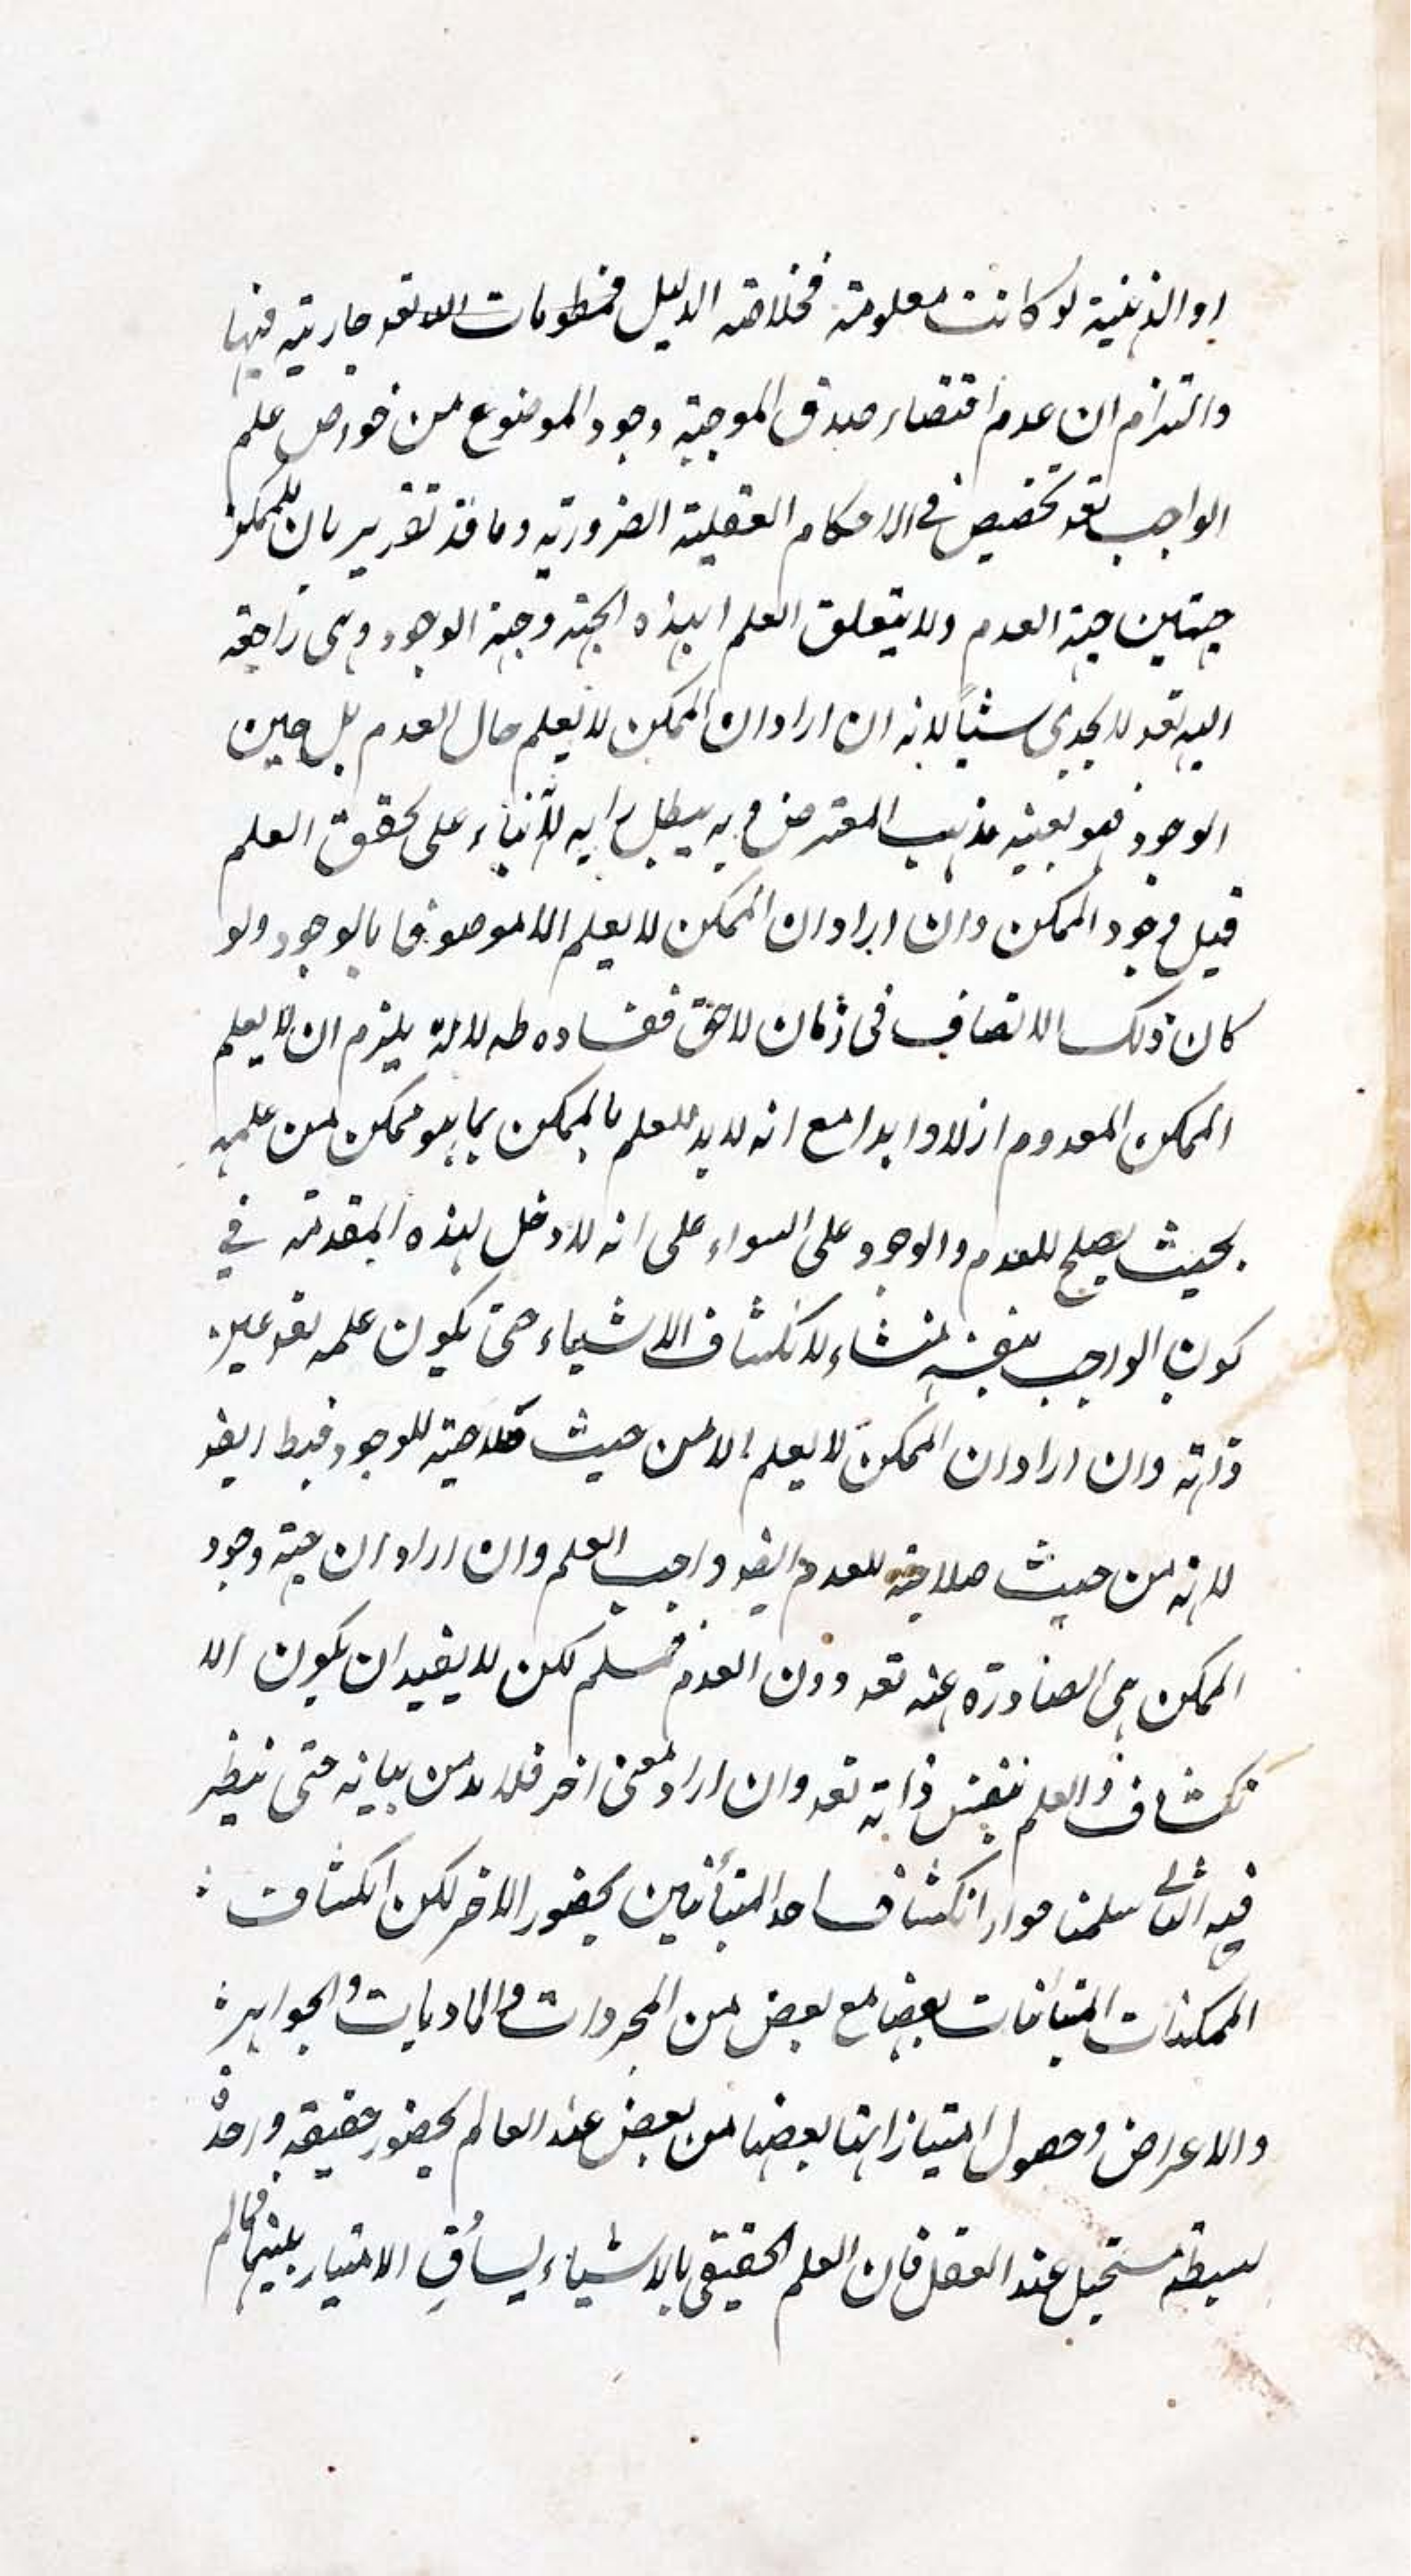 او الذهنية لو كانت معلومة فخلاصة الدليل جارية فيها
والتزام ان عدم اقتضاء صدق الموجبة وجود الموضوع من خواص علم
الواجب تعه تخصيص في الاحكام العقلية الضرورية وما قد تقرير بان للممكن
جهتين جهة العدم ولا يتعلق العلم بهذه الجهة وجهة الوجود وهى راجعة
اليه تعه لا يجدى شيئا لانه ان اراد ان الممكن لا يعلم حال العدم بل حين
الوجود فهو بعينه مذهب المعترض وبه يبطل رايه على تحقق العلم
قبل وجود الممكن وان اراد ان الممكن لا يعلم الا موصوفا بالوجود ولو
كان ذلك الاتصاف فى زمان لاحق ففساده ظه لانه يلزم ان لا يعلم
الممكن المعدوم ازلا وابدا مع انه لا بد للعلم بالممكن بما هو ممكن من علمه
بحيث يصلح للعدم والوجود على السواء على انه لا دخل لهذه المقدمة في
كون الواجب بنفسه منشاء لانكشاف الاشياء حتى يكون علمه تعه عين
ذاته وان اراد ان الممكن لا يعلم الا من حيث صلاحيته للوجود فبط ايضه
لانه من حيث صلاحيته للعدم ايضه واجب العلم وان اراد ان جهة وجود
الممكن هى الصادرة عنه تعه دون العدم فمسلم لكن لا يفيد ان يكون الا
نكشاف والعلم بنفس ذاته تعه وان اراد معنى اخر فلا بد من بيانه حتى ينظر
فيه الثانى سلمنا جواز انكشاف احد المتبائنين بحضور الاخر لكن انكشاف
الممكنات المتبائنات بعضها مع بعض من المجردات والماديات والجواهر
والاعراض وحصول امتيازاتها بعضها من بعض عند العالم بحضور حقيقة واحدة
بسيطة مستحيل عند العقل فان العلم الحقيقى بالاشياء يساوق الامتياز بينها فما لم